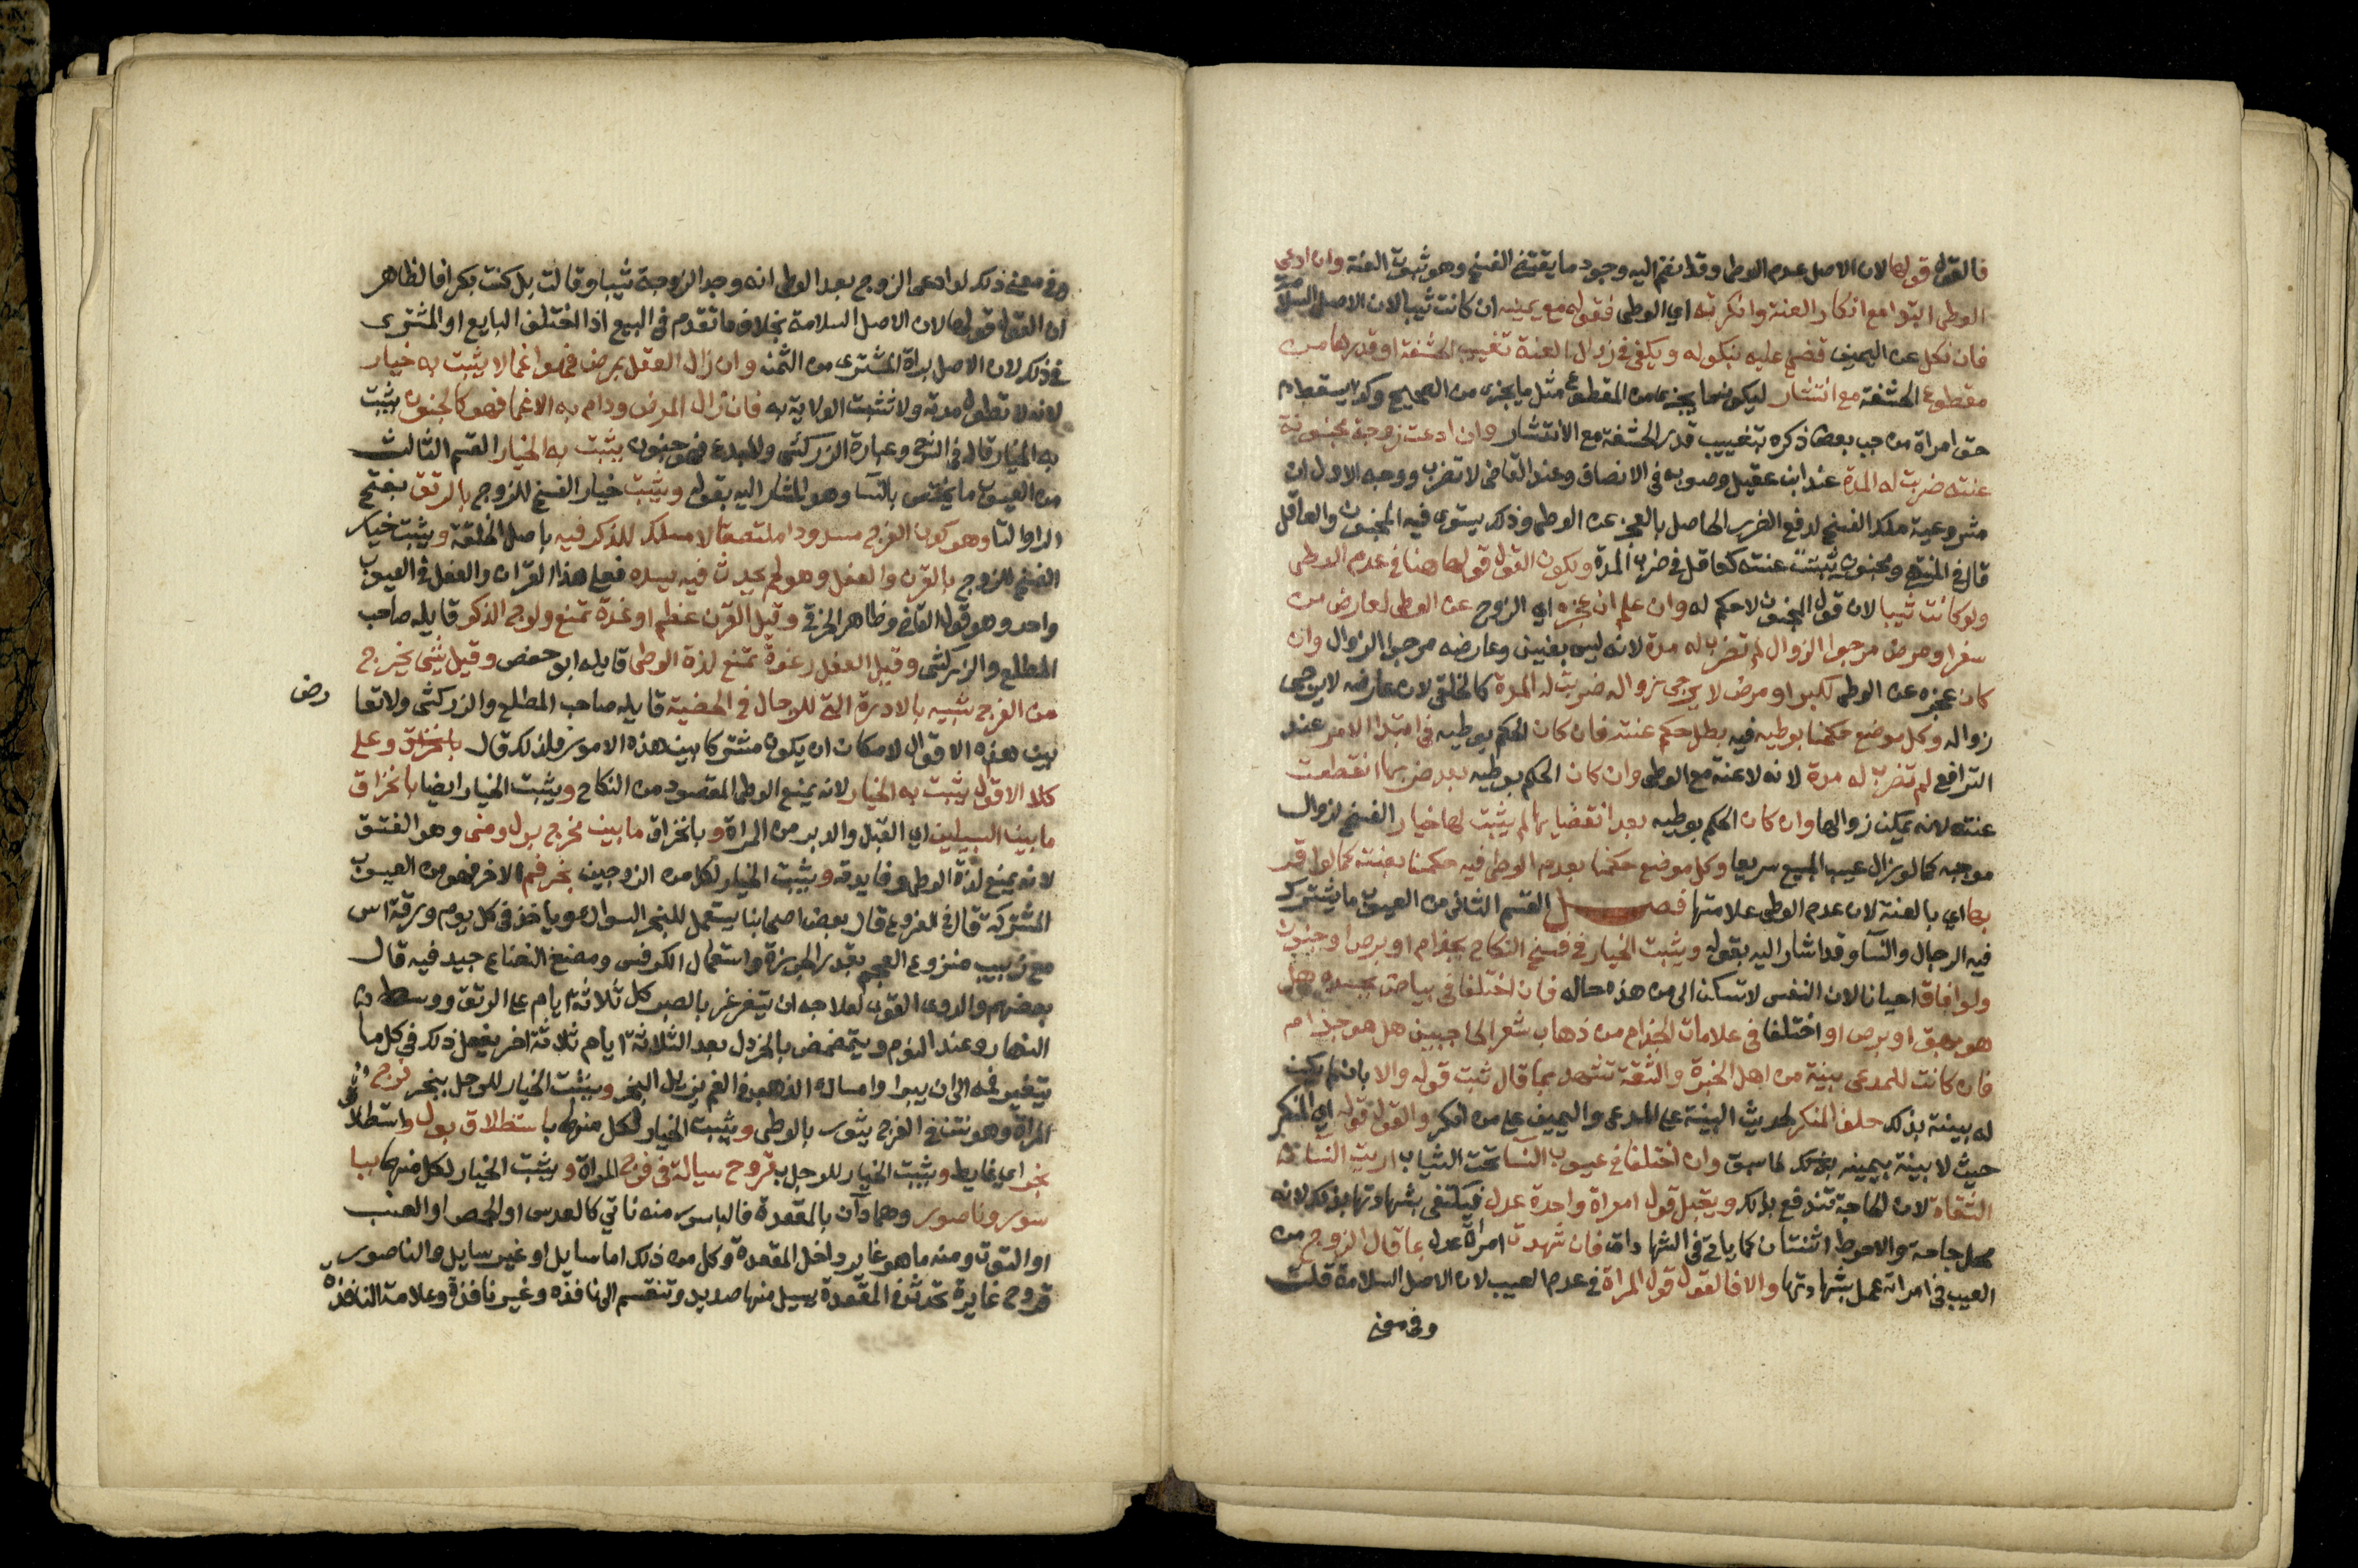 فالقول قولها لان الاصل عدم الوطي وقد انضم اليه وجود ما يقتضي الفسخ وهو ثبوت العنة وان ادعي
الوطي ابتدا مع انكار العنة وانكرته اي الوطي فقوله مع يمينه ان كانت ثيبا لان الاصل السلامة
فان نكل عن اليمين قضي عليه بنكوله ويكفي في زوال العنة تغييب الحشفة او قدرها من
مقطوع الحشفة مع انتشار ليكون ما يجزي من المقطوع مثل ما يجزي من الصحيح وكذا يسقط
حق امراة من جب بعض ذكره بتغييب قدر الحشفة مع الانتشار وان ادعت زوجة مجنون
عنته ضربت له المدة عند ابن عقيل وصوبه في الانصاف وعند القاضي لا تضرب ووجه الاول ان
مشروعية ملك الفسخ لدفع الضرر الحاصل بالعجز عن الوطي وذلك يستوي فيه المجنون والعاقل
قال في المنتهى ومجنون ثبتت عنته كعاقل في ضرب المدة ويكون القول قولها هنا في عدم الوطي
ولو كانت ثيبا لان قول المجنون لا حكم له وان علم ان عجزه اي الزوج عن الوطي لعارض من
سفر او مرض مرجو الزوال لم تضرب له مدة لانه ليس بعنين وعارضه مرجو الزوال وان
كان عجزه عن الوطي لكبر او مرض لا يرجى زواله ضربت له المدة كالخلقي لان عارضه لا يرجى
زواله وكل موضع حكمنا بوطيه فيه بطل حكم عنته فان كان الحكم بوطيه في ابتدا الامر عند
الترافع لم تضرب له مدة لانه لا عنة مع الوطي وان كان الحكم بوطيه بعد ضربها انقطعت
عنته لانه تمكن زوالها وان كان الحكم بوطيه بعد انقضايها لم يثبت لها خيار الفسخ لزوال
موجبه كما لو زال عيب المبيع سريعا وكل موضع حكمنا بعدم الوطي فيه حكمنا بعنته كما لو اقر
بها اي بالعنة لان عدم الوطي علامتها فصل القسم الثاني من العيوب ما يشترك
فيه الرجال والنسآ وقد اشار اليه بقوله ويثبت الخيار في فسخ النكاح بجذام او برص او جنون
ولو افاق احيانا لان النفس لا تسكن الى من هذه حاله فان اختلفا في بياض بجسده هل
هو بهق او برص او اختلفا في علامات الجذام من ذهاب شعر الحاجبين هل هو جذام
فان كانت للمدعي بينة من اهل الخبرة والثقة تشهد بما قال ثبت قوله والا بان لم يكن
له بينة بذلك حلف المنكر لحديث البينة على المدعي واليمين على من انكر والقول قوله اي المنكر
حيث لا بينة بيمينه بذلك لما سبق وان اختلفا في عيوب النسآ تحت الثياب اريت النسآ
الثقاة لان الحاجة تندفع بذلك ويقبل قول امراة واحدة عدل فيكتفى بشهادتها بذلك لانه
محل حاجة والاحوط اثنتان كما ياتي في الشهادات فان شهدت امراة عدل بما قال الزوج من
العيب في امراته عمل بشهادتها والا فالقول قول المراة في عدم العيب لان الاصل السلامة قلت
وفي معنى
وفي معنى ذلك لو ادعى الزوج بعد الوطي انه وجد الزوجة ثيبا وقالت بل كنت بكرا فالظاهر
ان القول قولها لان الاصل السلامة بخلاف ما تقدم في البيع اذا اختلف البايع او المشتري
في ذلك لان الاصل براة المشتري من الثمن وان زال العقل بمرض فهو اغما لا يثبت به خيار
لانه لا تطول مدته ولا تثبت الولاية به فان زال المرض ودام به الاغما فهو كالجنون يثبت
به الخيار قال في الشرح وعبارة الزركشي والمبدع فهو جنون يثبت به الخيار القسم الثالث
من العيوب ما يختص بالنسآ وهو المشار اليه بقوله ويثبت خيار الفسخ للزوج بالرتق بفتح
الرا والتا وهو كون الفرج مسدودا ملتصقا لا مسلك للذكر فيه باصل الخلقة ويثبت خيار
الفسخ للزوج بالقرن والعفل وهو لحم يحدث فيه يسده فعلى هذا القرن والعفل في العيوب
واحد وهو قول القاضي وظاهر الخرقي وقيل القرن عظم او غدة تمنع ولوج الذكر قايله صاحب
المطلع والزركشي وقيل العفل رغوة تمنع لذة الوطي قايله ابو حفص وقيل شي يخرج
من الفرج شبيه بالادرة التي للرجال في الخصية قايله صاحب المطلع والزركشي ولا تعا
رض
بين هذه الاقوال لامكان ان يكون مشتركا بين هذه الامور فلذلك قال بانخراق وعلى
كلا الاقول يثبت به الخيار لانه يمنع الوطي المقصود من النكاح ويثبت الخيار ايضا بانخراق
ما بين السبيلين اي القبل والدبر من المراة وبانخراق ما بين مخرج بول ومني وهو الفتق
لانه يمنع لذة الوطي وفايدته ويثبت الخيار لكل من الزوجين ببخر فم الاخر فهو من العيوب
المشتركة قال في الفروع قال بعض اصحابنا يستعمل للبخر السواك وياخذ في كل يوم ورقة اس
مع زبيب منزوع العجم بقدر الجوزة واستعمال الكرفس ومضغ النعناع جيد فيه قال
بعضهم والدوي القوي لعلاجه ان يتغرغر بالصبر كل ثلاثة ايام على الريق ووسط
النهار وعند النوم ويتمضمض بالخردل بعد الثلاثة ايام ثلاثة اخر يفعل ذلك في كل ما
يتغير فمه الى ان يبرا وامساك الذهب في الفم يزيل البخر ويثبت الخيار للرجل ببخر فرج
المراة وهو نتن في الفرج يثور بالوطي ويثبت الخيار لكل منهما باستطلاق بول واستطلا
نجو اي غايط ويثبت الخيار للرجل بقروح سيالة في فرج المراة ويثبت الخيار لكل منهما ببا
سور وناصور وهما دآن بالمقعدة فالباسور منه ناتي كالعدس او الحمص او العنب
او التوت ومنه ما هو غاير داخل المقعدة وكل من ذلك اما سايل او غير سايل والناصور
قروح غايرة تحدث في المقعدة يسيل منها صديد وتنقسم الى نافذة وغير نافذة وعلامة النافذة